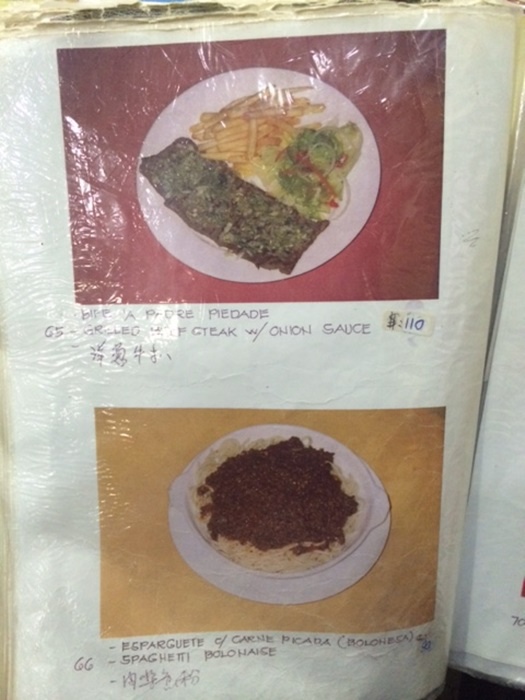 BIFE A PADRE PIEDADE
65 - GRILLED BEEF STEAK W/ ONION SAUCE $:110
- 洋葱牛扒
- ESPARGUETE C/ CARNE PICADA (BOLONESA)
66 - SPAGHETTI BOLONAISE
- 肉酱意粉
70